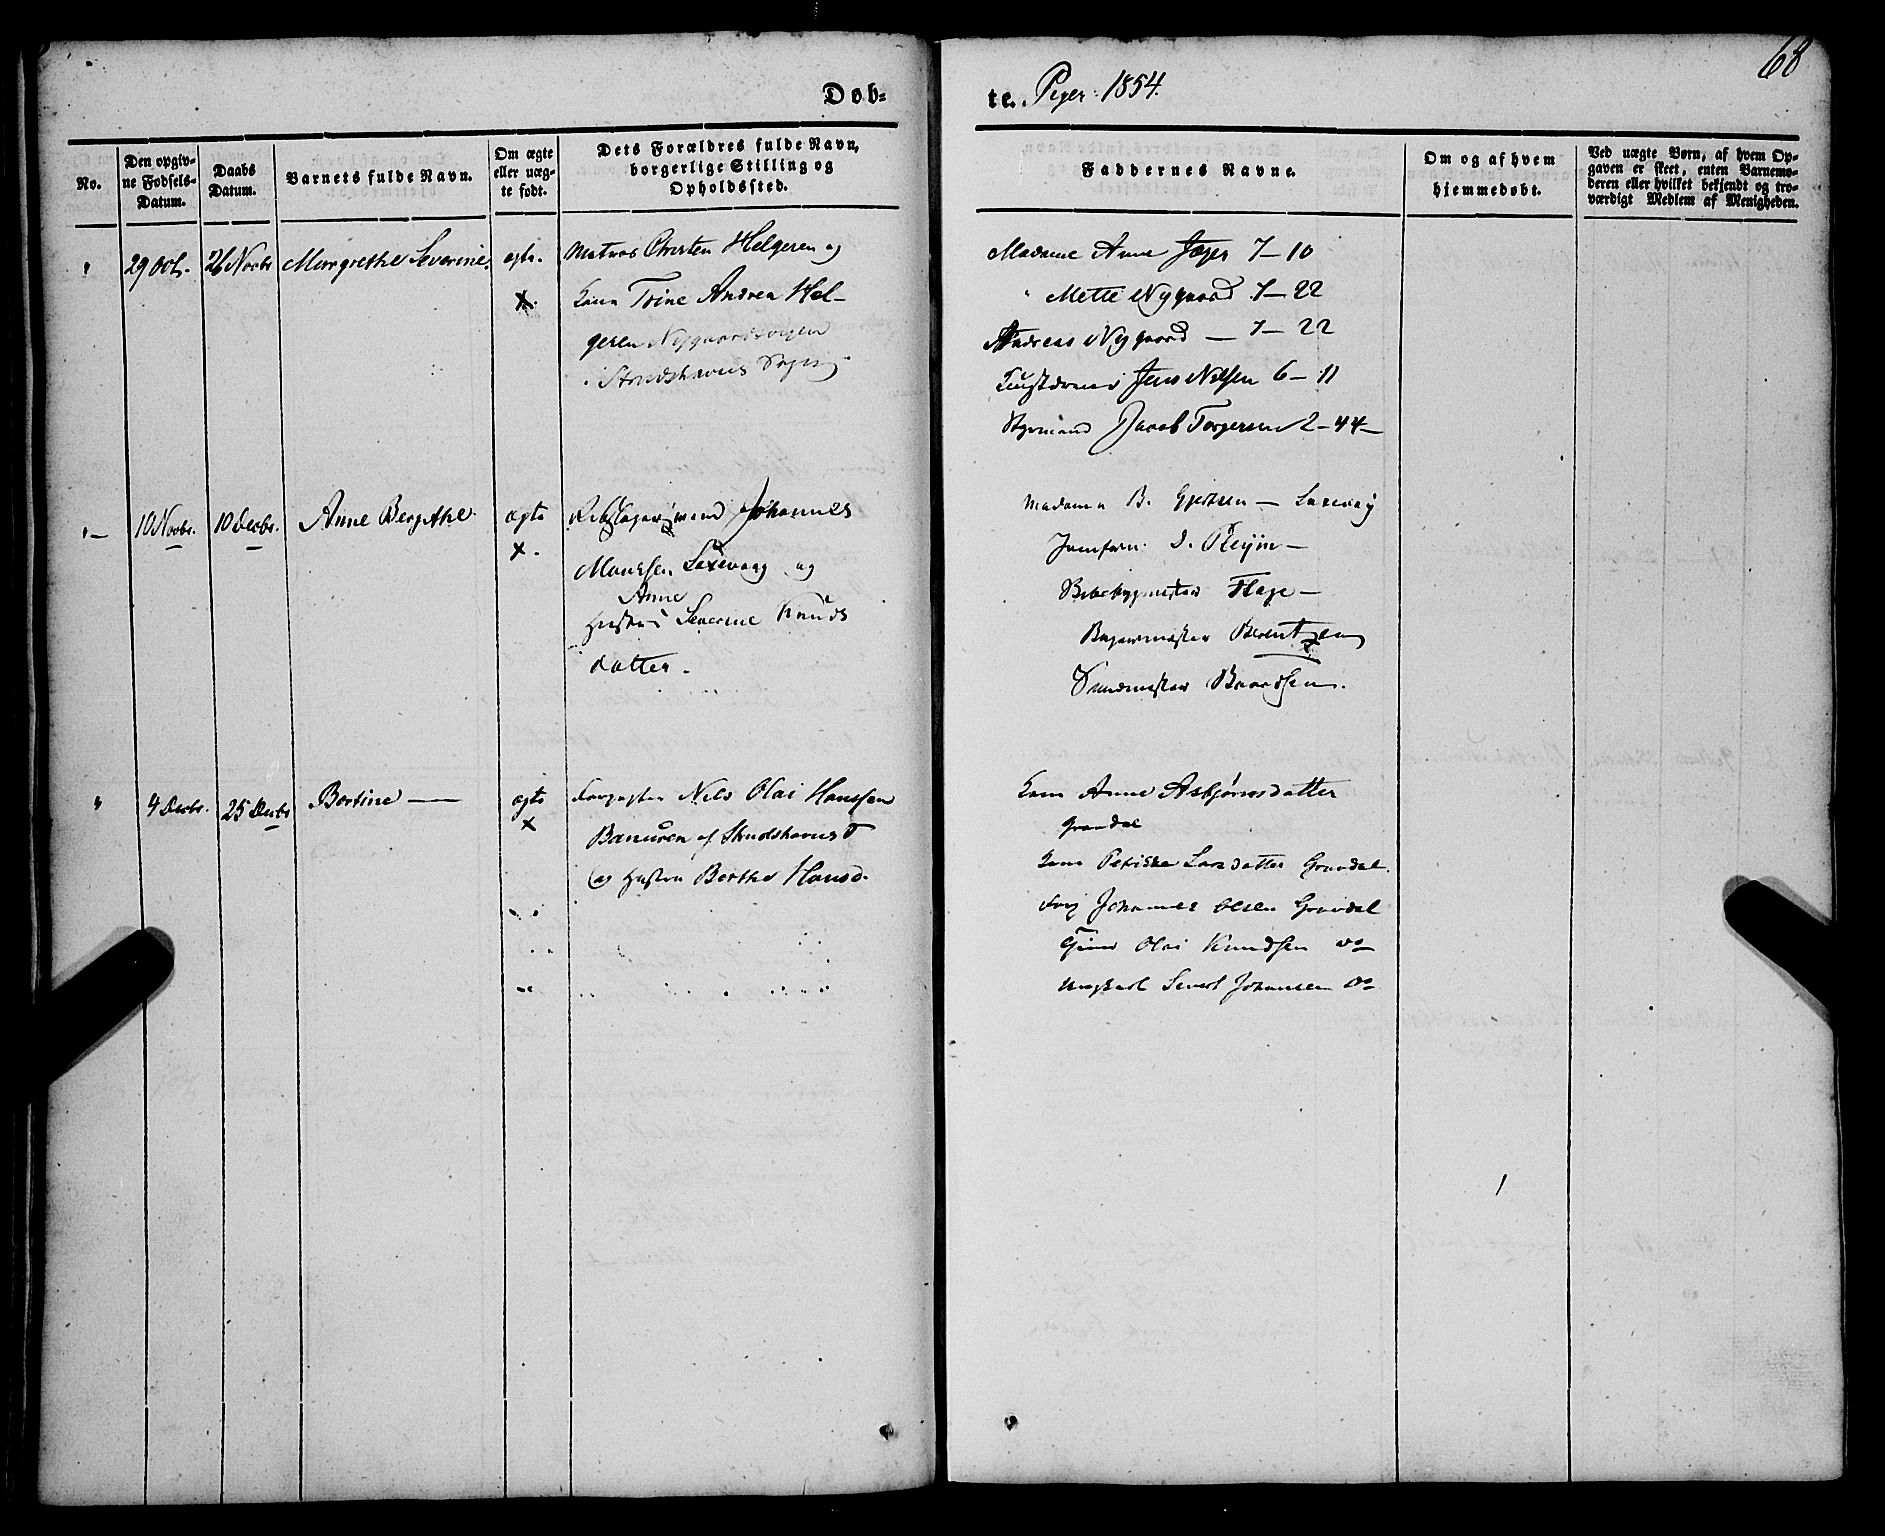 68
Døb=
te. Piger 1854.
No.
Den opgiv-
ne Fødsels-
Datum.
Daabs
Datum.
Barnets fulde Navn.
Om ægte
eller uæg-
te født.
Dets Forældres fulde Navn,
borgerlige Stilling og
Opholdssted.
Faddernes Navne.
Om og af hvem
hjemmedøbt.
Ved uægte Børn, af hvem Op-
gaven er skeet, enten Barnemo-
deren eller hvilket bekjendt og tro-
værdigt Medlem af Menigheden.
29 Oct. 26 Novbr Margrethe Severine. ægte. Matros Christen Helgesen og
x. Kone Trine Andrea Hel-
gesen Nygaardsveien
Madame Anne Jæger 7-10
" Mette Nygaard 7-22
Andreas Nygaard - 7-22
Jens Nilsen 6-11
Styrmand Jacob Torgersen 2-44-
10 Novbr. 10 Decbr. Anne Bergithe ægte Johannes
x. Monssen Laxevaag og
Anne
Hustru Severine Knuds
datter.
Madame B. Gjertsen - Laxevaag
Jomfru D.
Flage -
Bagermester Berentzen
4 Decbr. 25 Decbr Bertine ægte Nils Olai Hanssen
x af Skudshavns
og Hustru Berthe Hansd.
Kone Anne Asbjørnsdatter
Gravdal
Kone Larsdatter Gravdal.
Johannes Olsen Gravdal
Olai Knudsen do
Ungkarl Sivert Johannesen do